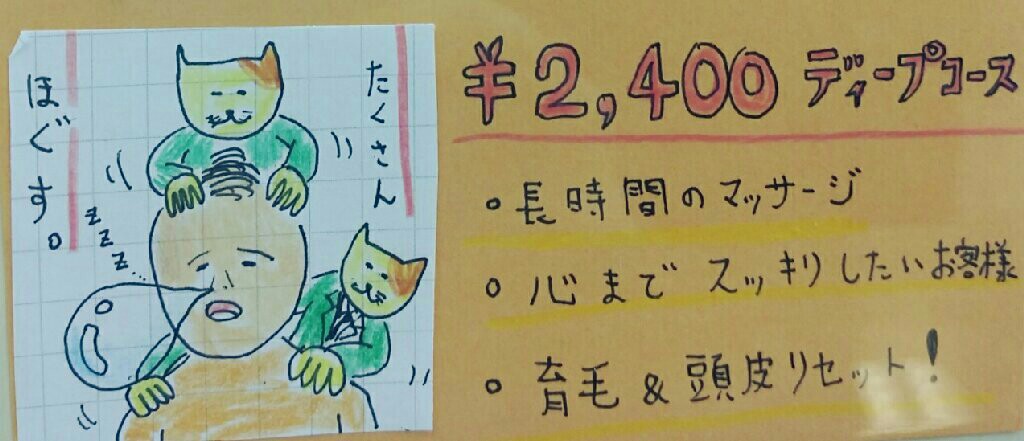 たくさん
ほぐす。
zzz...
¥2,400 ディープコース
・長時間のマッサージ
・心までスッキリしたいお客様
・育毛&頭皮リセット!